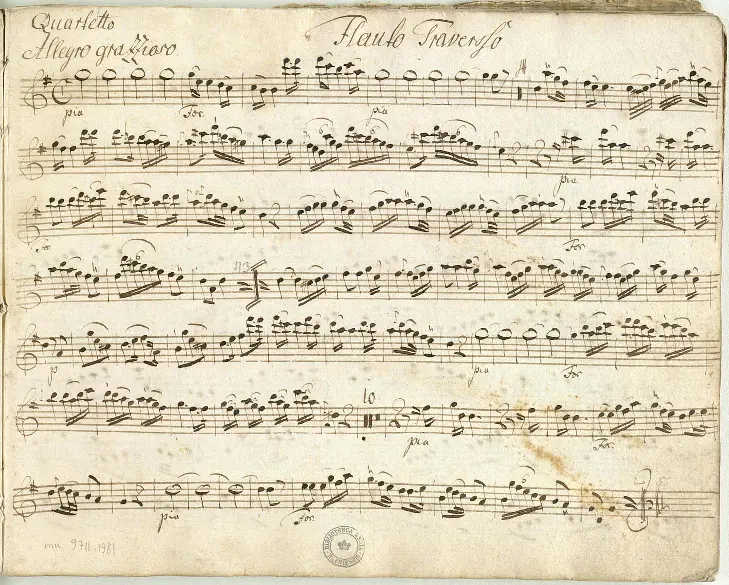 Quartetto
Flauto Traversso
Allegro grazioso
pia For. pia
pia
For
p pia For
10
pia For.
pia For.